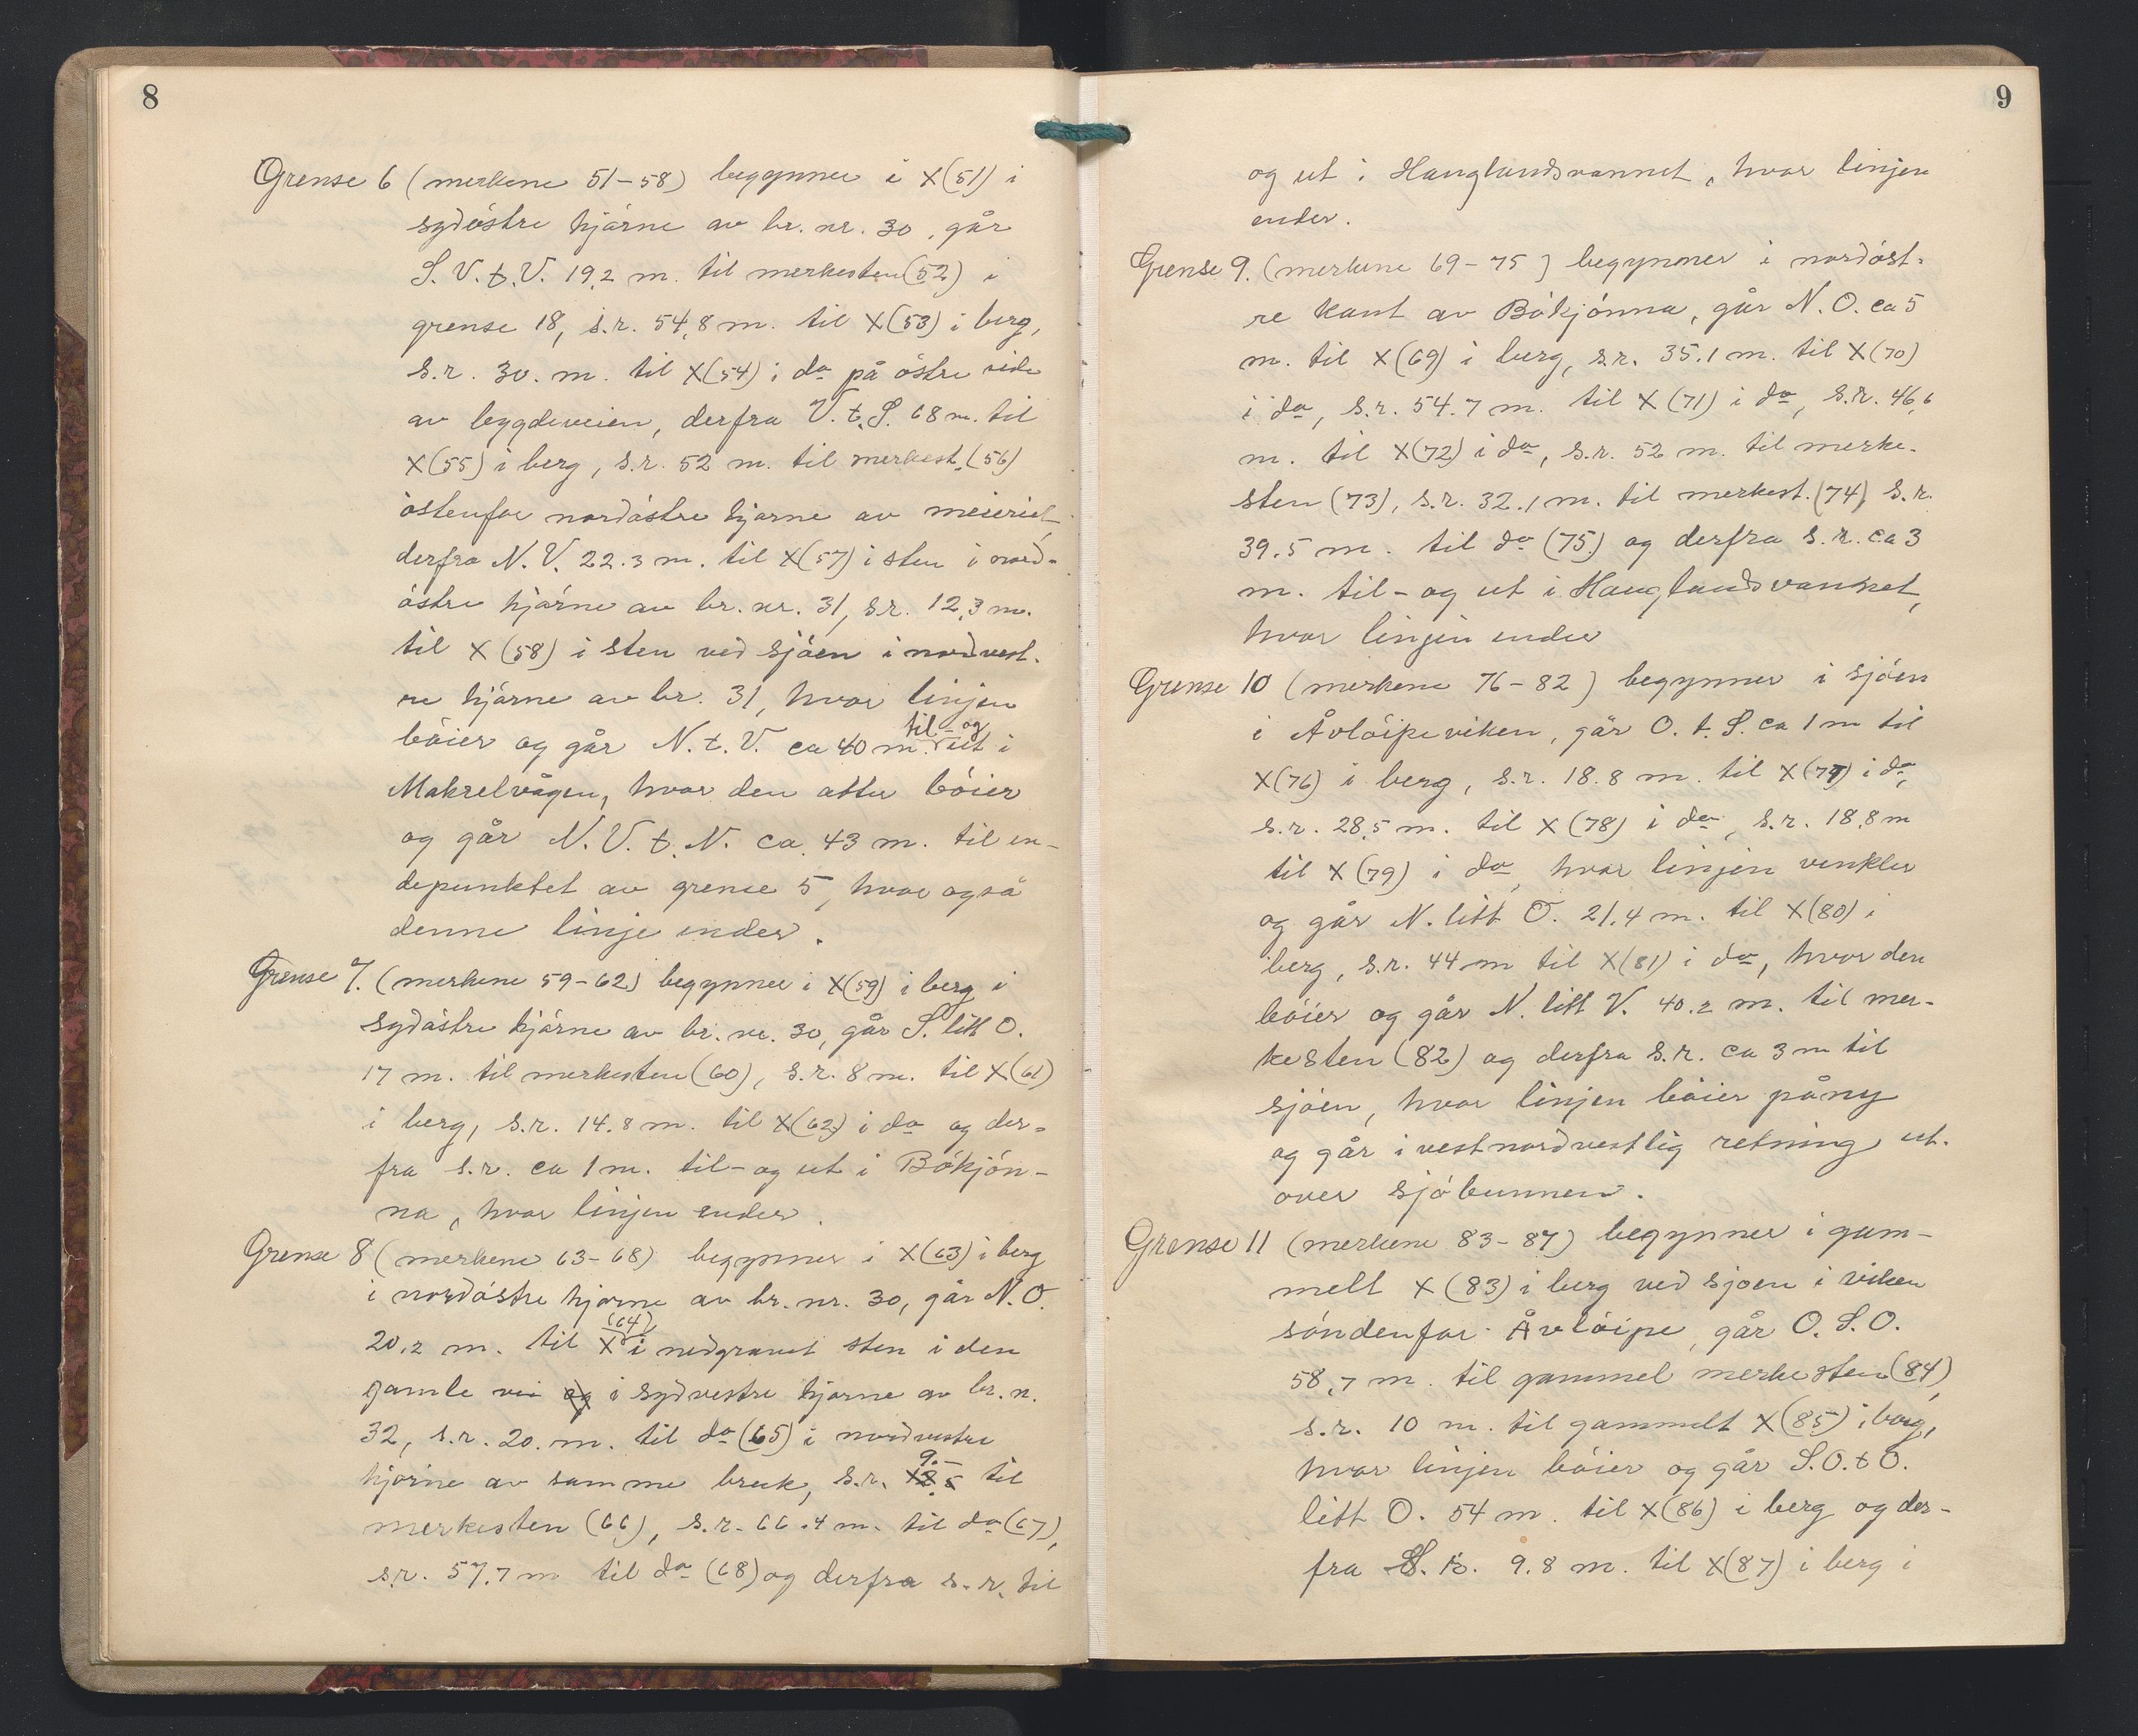 8
Grense 6 (merkene 51-58) begynner i X(51) i
sydöstre hjörne av br. nr. 30, går
S.V.t.V. 19,2 m. til merkesten (52) i
grense 18, s.r. 54,8 m. til X(53) i berg,
s.r. 30. m. til X(54) i do på östre side
av bygdeveien, derfra V.t.S. 68 m. til
X(55) i berg, s.r. 52 m. til merkest. (56)
östenfor nordöstre hjörne av meieriet,
derfra N.V. 22.3 m. til X(57) i sten i nord-
östre hjörne av br. nr. 31, s.r. 12,3 m.
til X (58) i sten ved sjöen i nordvest-
re hjörne av br. 31, hvor linjen
böier og går N.t.V. ca 40 m. til- og ut i
Makrelvågen, hvor den atter böier
og går N.V.t.N. ca. 43 m. til en-
depunktet av grense 5, hvor også
denne linje ender.
Grense 7. (merkene 59-62) begynner i X(59) i berg i
sydöstre hjörne av br. nr. 30, går S. litt O.
17 m. til merkesten (60), s.r. 8 m. til X(61)
i berg, s.r. 14.8 m. til X(62) i do og der-
fra s.r. ca 1 m. til- og ut i Bökjön-
na, hvor linjen ender.
Grense 8 (merkene 63-68) begynner i X(63) i berg
i nordöstre hjörne av br. nr. 30, går N.O.
20,2 m. til X (64) i nedgravet sten i den
gamle vei og i sydvestre hjörne av br. n.
32, s.r. 20. m. til do (65) i nordvestre
hjörne av samme bruk, s.r. 18.5 9.- til
merkesten (66), s.r. 66.4 m. til do (67),
s.r. 57,7 m til do (68) og derfra s.r. til
9
og ut i Hauglandsvannet, hvor linjen
ender.
Grense 9. (merkene 69-75) begynner i nordöst-
re kant av Bökjönna, går N.O. ca 5
m. til X (69) i berg, s.r. 35.1 m. til X(70)
i do, s.r. 54.7 m. til X (71) i do, s.r. 46,6
m. til X(72) i do, s.r. 52 m. til merke-
sten (73), s.r. 32.1 m. til merkest. (74), s.r.
39.5 m. til do (75) og derfra s.r. ca 3
m. til- og ut i Hauglandsvannet,
hvor linjen ender
Grense 10 (merkene 76-82) begynner i sjöen
i Avlöipeviken, går O.t.S. ca 1 m til
X(76) i berg, s.r. 18.8 m. til X(77) i do,
s.r. 28,5 m. til X (78) i do, s.r. 18,8 m
til X (79) i do, hvor linjen vinkler
og går N. litt O. 21.4 m. til X(80) i
berg, s.r. 44 m til X(81) i do, hvor den
böier og går N. litt V. 40.2 m. til mer-
kesten (82) og derfra s.r. ca 3 m til
sjöen, hvor linjen böier påny
og går i vestnordvestlig retning ut-
over sjöbunnen.
Grense 11 (merkene 83-87) begynner i gam-
melt X (83) i berg ved sjöen i viken
söndenfor Avlöipe, går O.S.O.
58,7 m. til gammel merkesten (84),
s.r. 10 m. til gammelt X(85) i berg,
hvor linjen böier og går S.O.t.O.
litt O. 54 m. til X(86) i berg og der-
fra S.r. 9.8 m. til X(87) i berg i